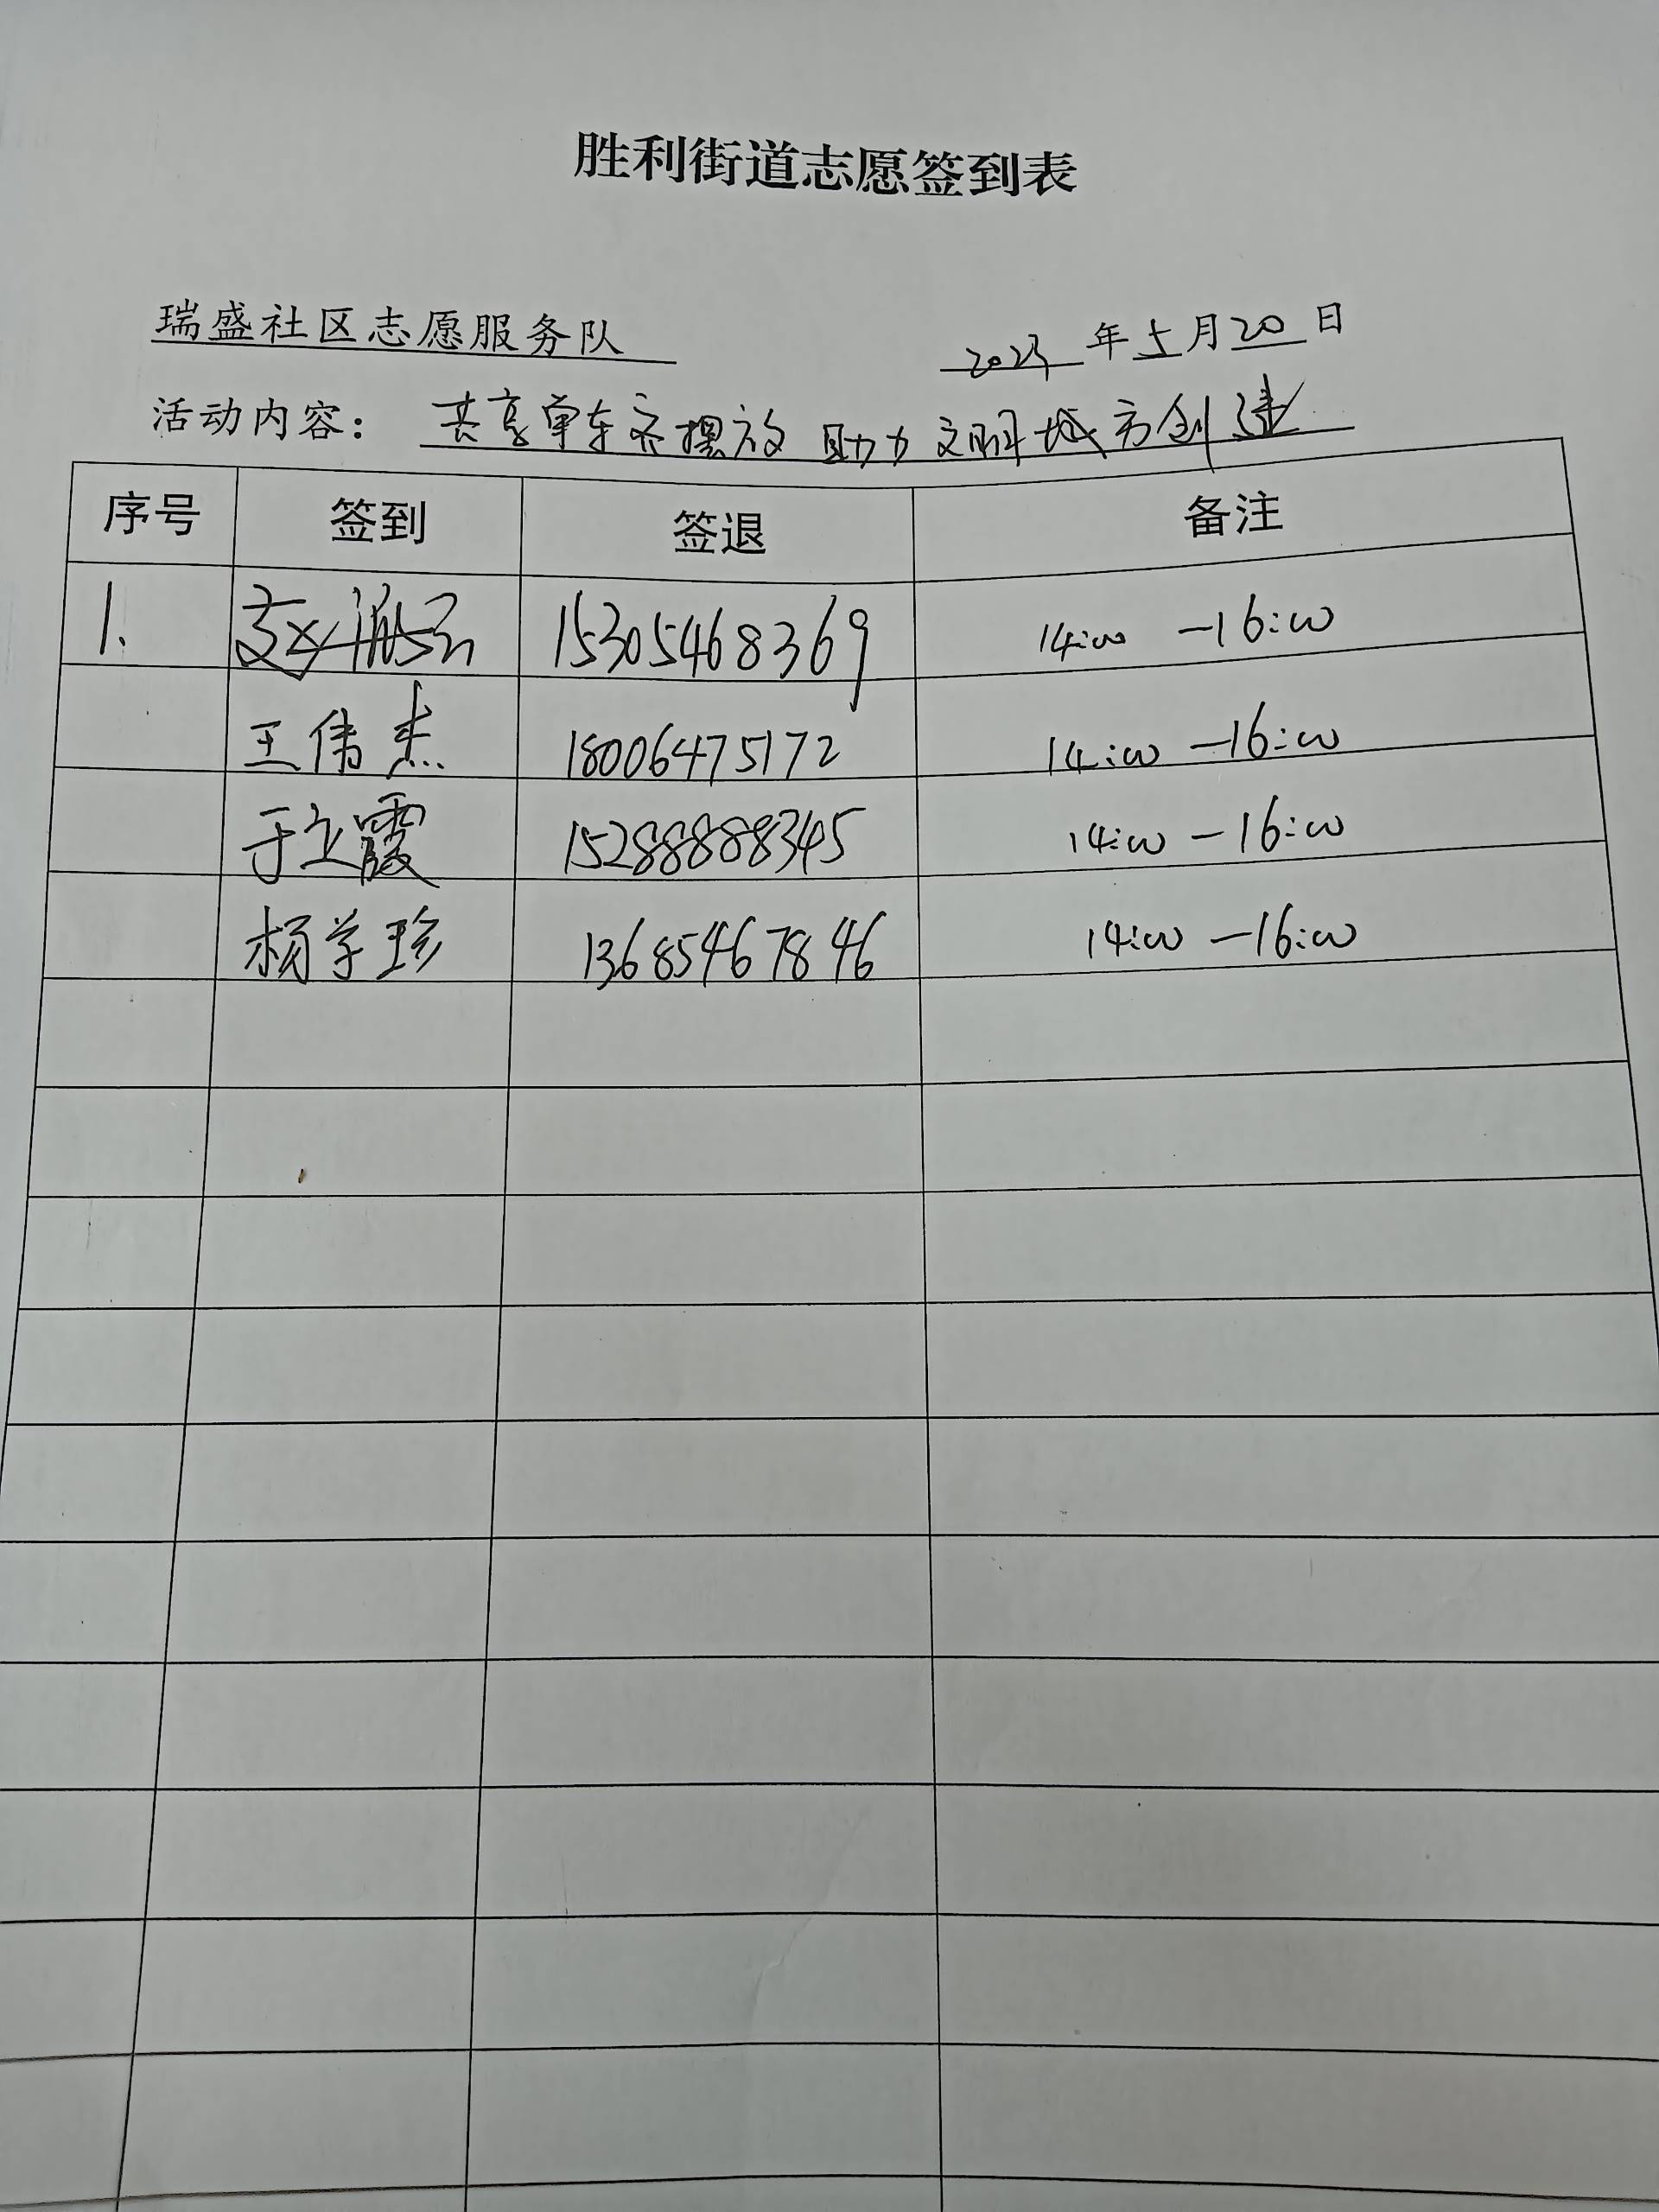 胜利街道志愿签到表
瑞盛社区志愿服务队 2023年5月20日
活动内容： 共享单车齐摆放 助力文明城市创建
序号 签到 签退 备注
1. 15305468369 14:00 —16:00
王伟杰 18006475172 14:00 —16:00
于立霞 15288888345 14:00 —16:00
杨学珍 13685467846 14:00 —16:00